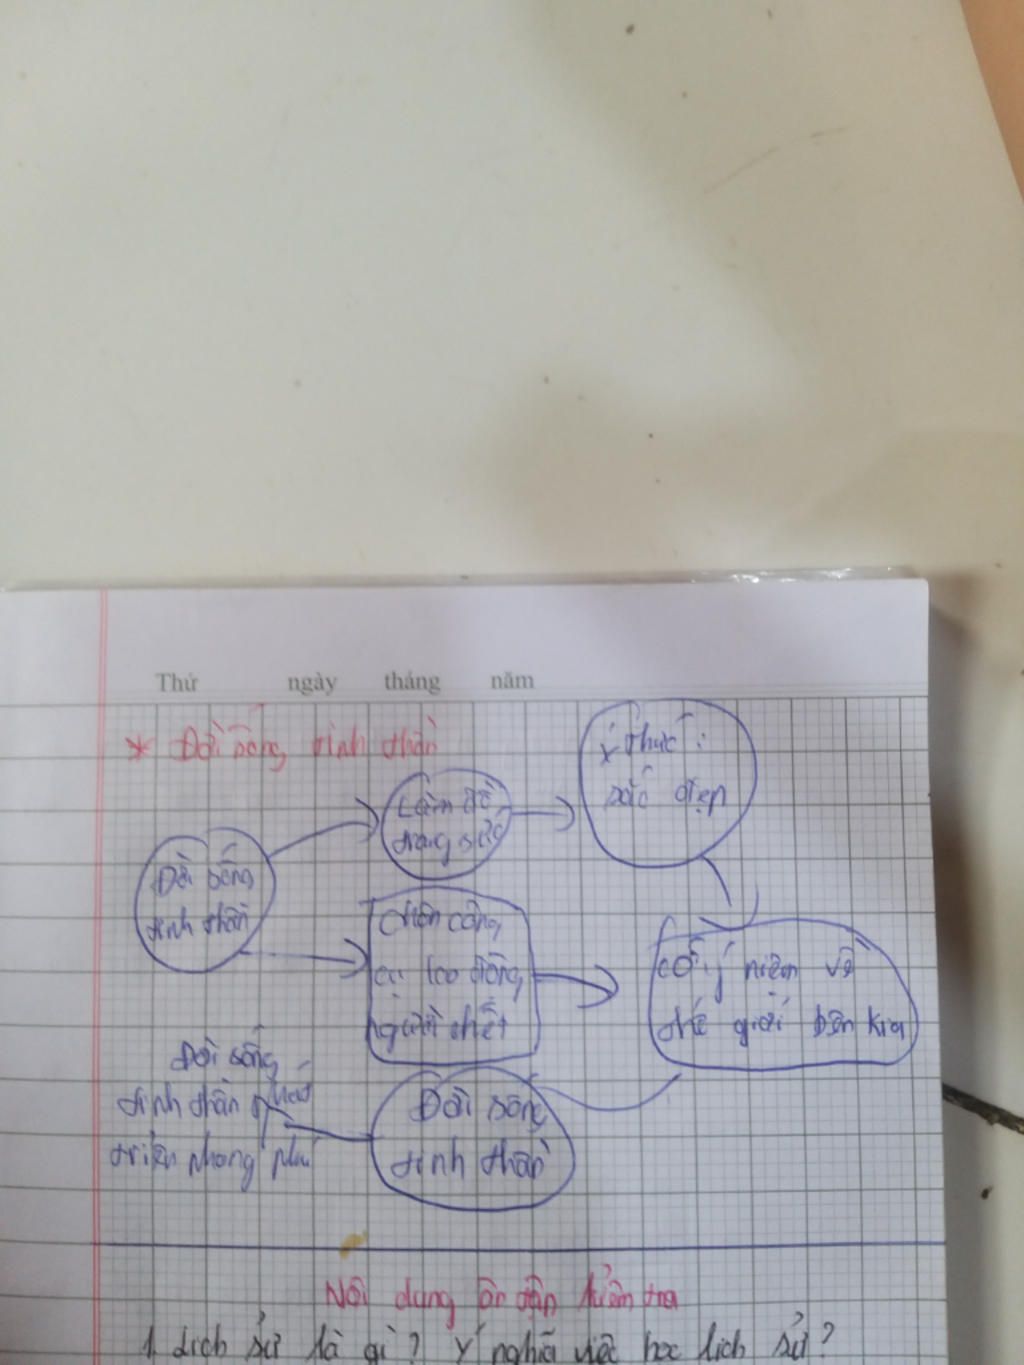 Thứ ngày tháng năm
* Đời sống tinh thần
Đời sống
tinh thần
Làm đồ
trang sức
ý thức:
sắc đẹp
chôn công
cụ lao động
người chết
có ý niệm về
thế giới bên kia
Đời sống
tinh thần
Đời sống
tinh thần khá
triển phong phú
Nội dung ôn tập kiểm tra
1. Lịch sử là gì? Ý nghĩa việc học lịch sử?